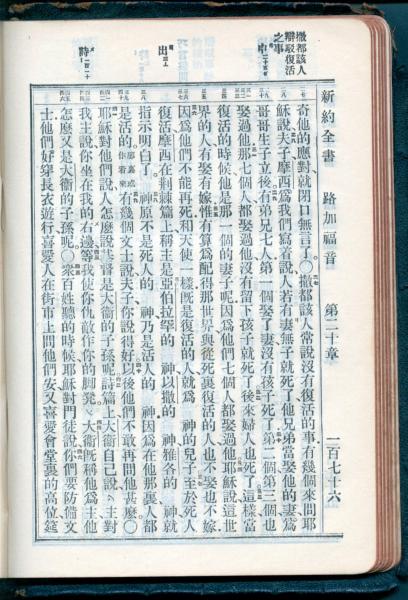 新約全書 路加福音 第二十章 一百七十六
撒都該人
辯駁復活
之事
申二十五 五
出三 六
詩一百一十 一
奇他的應對就閉口無言了○撒都該人常說沒有復活的事有幾個來問耶
穌說夫子摩西爲我們寫着說人若有妻無子就死了他兄弟當娶他的妻爲
哥哥生子立後有弟兄七人第一個娶了妻沒有孩子死了第二個第三個也
娶過他那七個人都娶過他沒有留下孩子就死了後來婦人也死了這樣當
復活的時候他是那一個的妻子呢因爲他們七個人都娶過他耶穌說這世
界的人有娶有嫁惟有算爲配得那世界與從死裏復活的人也不娶也不嫁
因爲他們不能再死和天使一樣旣是復活的人就爲 神的兒子至於死人
復活摩西在荆棘篇上稱主是亞伯拉罕的 神以撒的 神雅各的 神就
指示明白了 神原不是死人的 神乃是活人的 神因爲在他那裏人都
是活的 有幾個文士說夫子你說得好以後他們不敢再問他甚麼○
耶穌對他們說人怎麼說基督是大衛的子孫呢詩篇上大衛自己說主對
我主說你坐在我的右邊等我使你仇敵作你的脚凳大衛旣稱他爲主他
怎麼又是大衛的子孫呢○衆百姓聽的時候耶穌對門徒說你們要防備文
士他們好穿長衣遊行喜愛人在街市上問他們安又喜愛會堂裏的高位筵